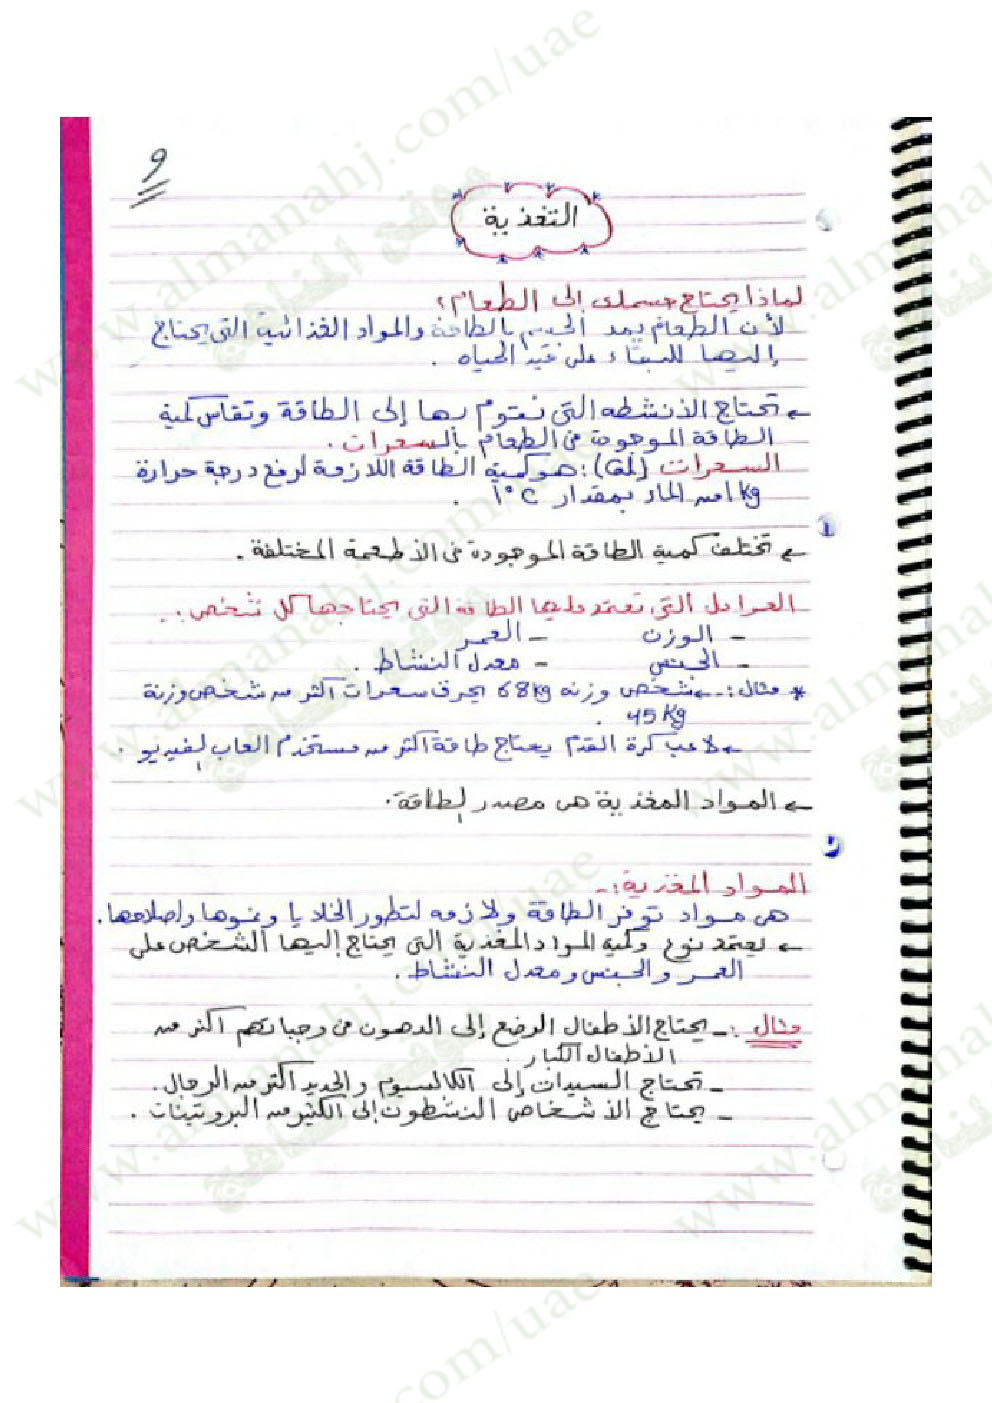 9
التغذية
لماذا يحتاج جسمك إلى الطعام؟
لأن الطعام يمد الجسم بالطاقة والمواد الغذائية التي يحتاج
إليها للبقاء على قيد الحياه .
← تحتاج الأنشطه التي نقوم بها إلى الطاقة وتقاس كمية
الطاقة الموجودة في الطعام بالسعرات .
السعرات (Cal): هو كمية الطاقة اللازمة لرفع درجة حرارة
1kg من الماء بمقدار 1°C .
1
← تختلف كمية الطاقة الموجودة في الأطعمة المختلفة .
العوامل التي تعتمد عليها الطاقة التي يحتاجها كل شخص :.
- الوزن - العمر
- الجنس - معدل النشاط .
* مثال :- ← شخص وزنه 68kg يحرق سعرات اكثر من شخص وزنة
45 Kg .
← لاعب كرة القدم يحتاج طاقة اكثر من مستخدم العاب الفيديو .
← المواد المغذية هي مصدر الطاقة .
2
المواد المغذية :-
هي مواد توفر الطاقة ولازمه لتطور الخلايا ونموها واصلاحها .
← يعتمد نوع وكمية المواد المغذية التي يحتاج إليها الشخص على
العمر والجنس ومعدل النشاط .
مثال :- يحتاج الأطفال الرضع إلى الدهون في وجباتهم اكثر من
الأطفال الكبار .
- تحتاج السيدات إلى الكالسيوم والحديد اكثر من الرجال .
- يحتاج الأشخاص النشطون إلى الكثير من البروتينات .
www.almanahj.com/uae
موقع المناهج